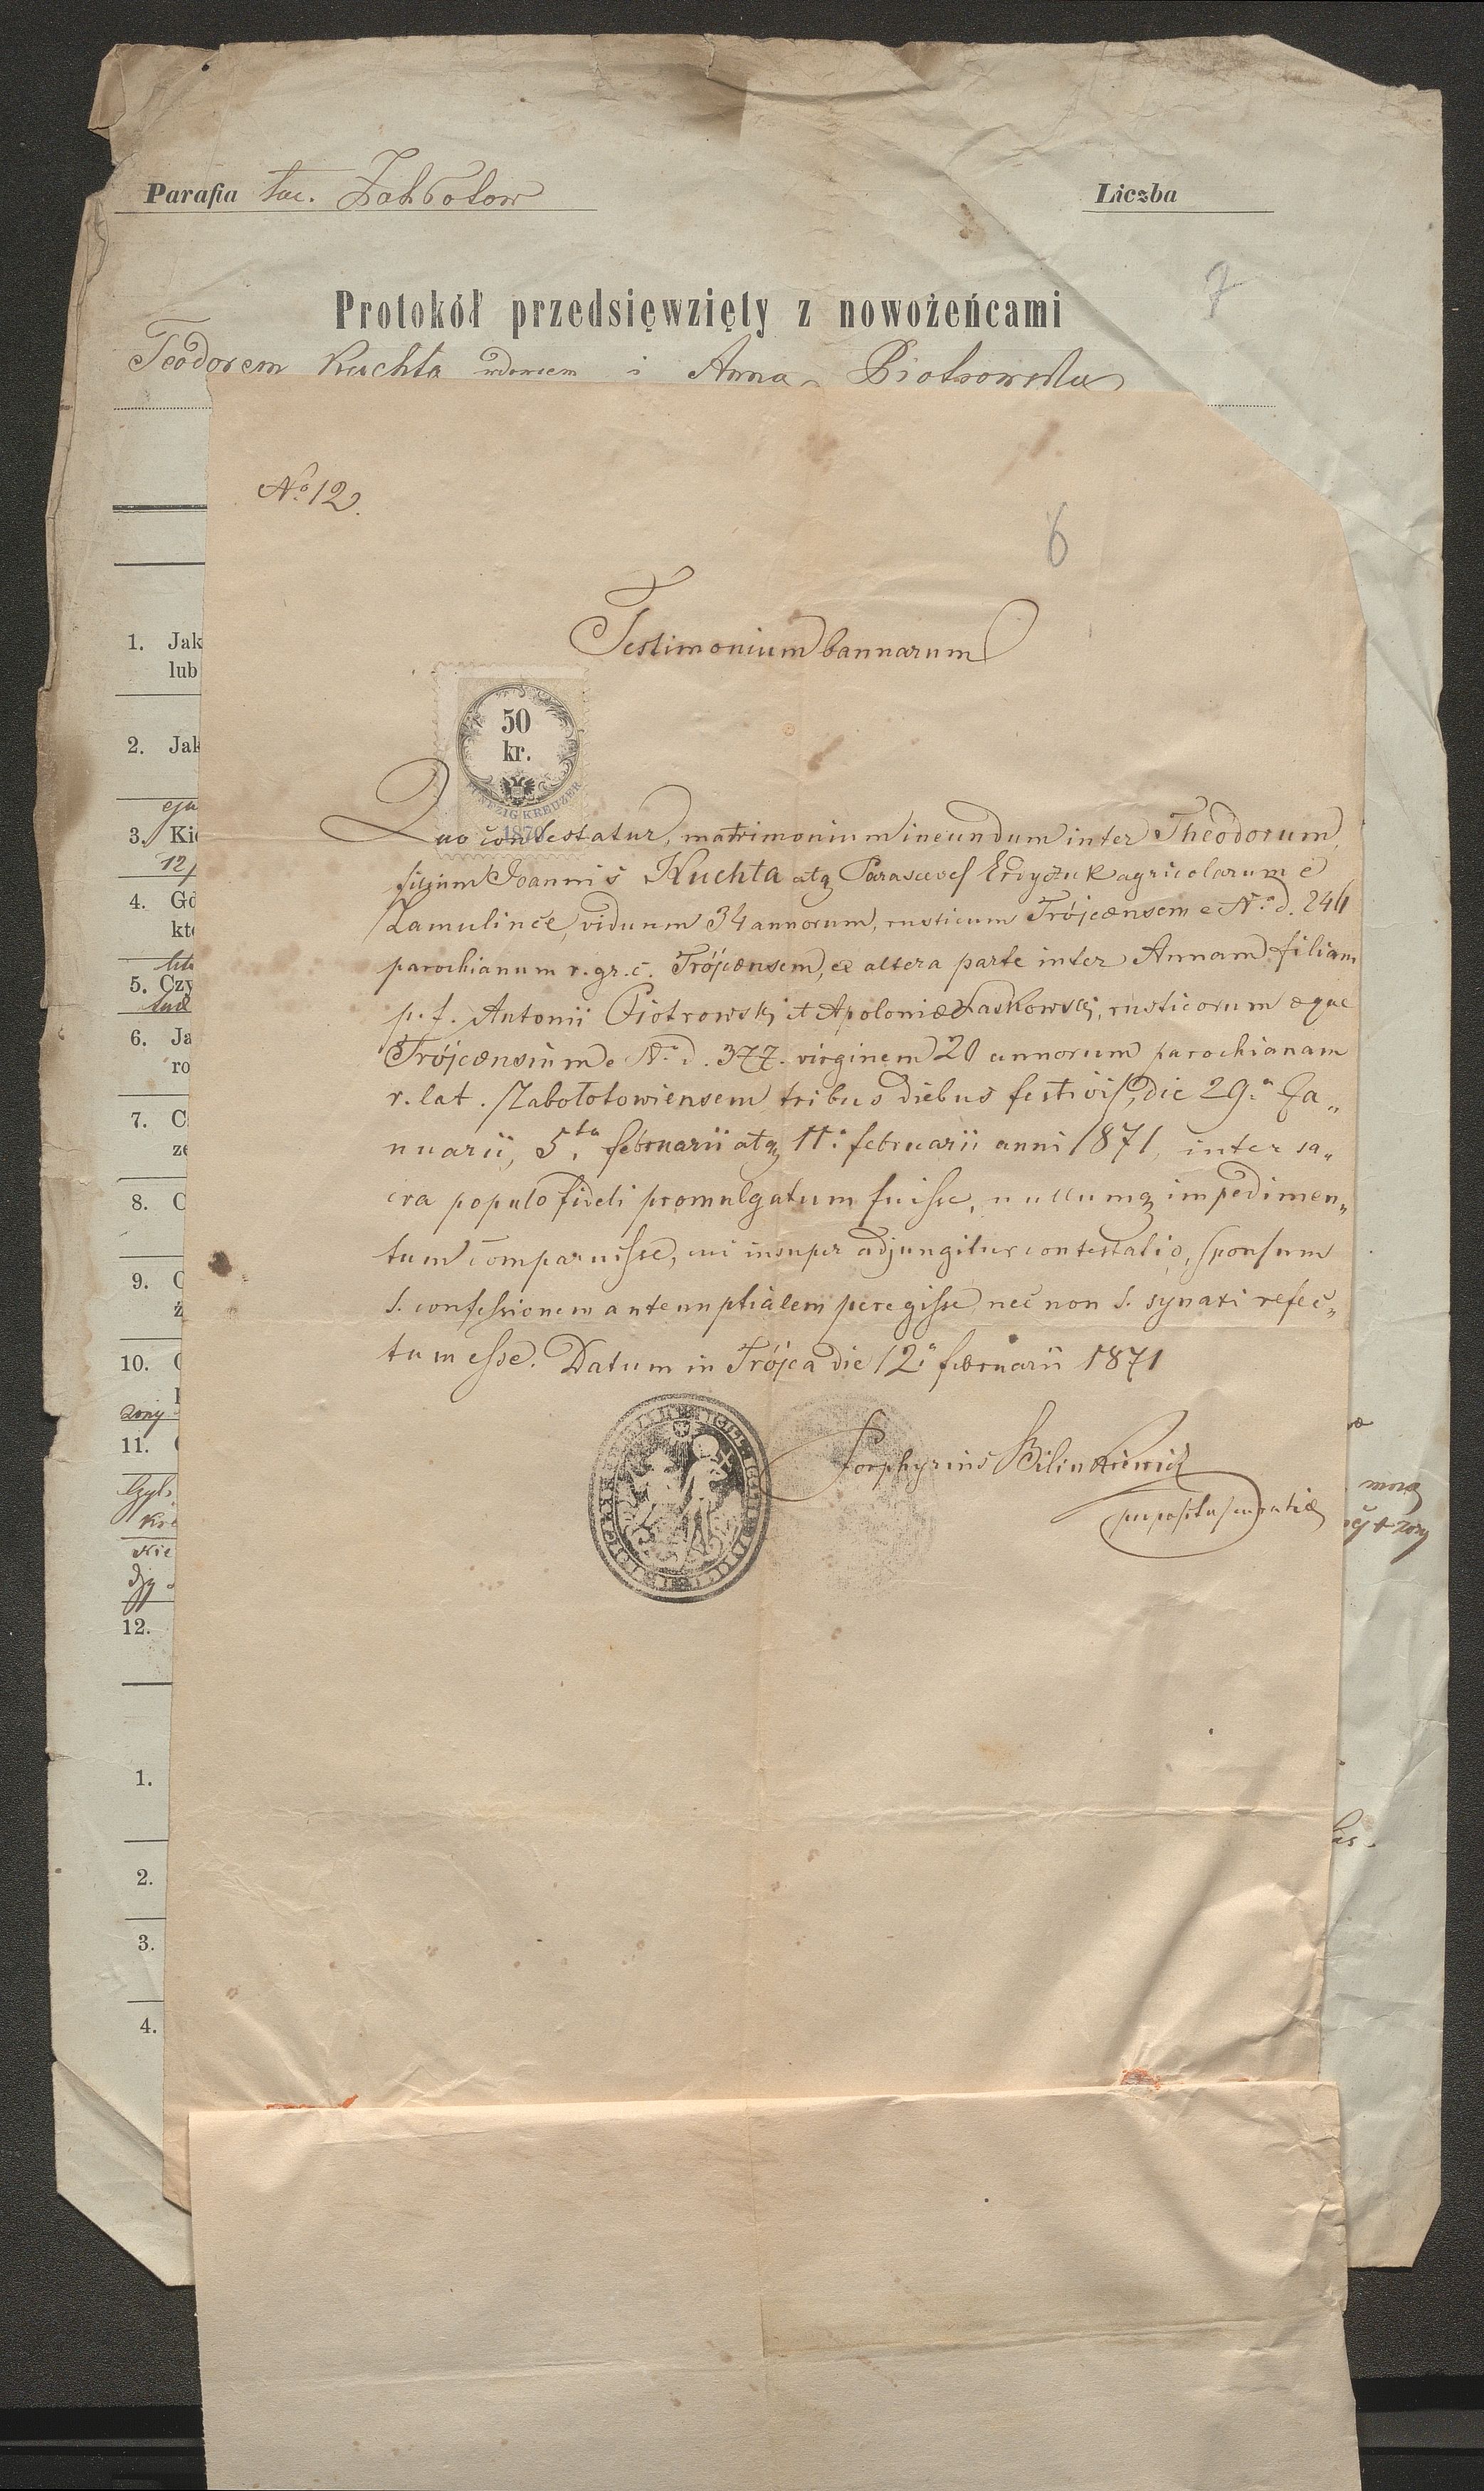 Parafia łac. Zabłotow
Liczba
Protokół przedsięwzięty z nowożeńcami
7
Teodorem Kuchta wdowcem i Anna Piotrowska
No 12.
6
Testimonium bannarum
50
kr.
FÜNFZIG KREUZER
1870
Quo contestatur, matrimonium ineundum inter Theodorum,
filium Joannis Kuchta atq Parascevef Erdyczuk agricolarum e
Zamulińce, viduum 34 annorum, rusticum Trójcænsem e N.o d. 246
parochianum r. gr. c. Trójcænsem, ex altera parte inter Annam filiam
p. f. Antonii Piotrowskj et Apoloniæ Laskowskj, rusticorum æque
Trójcænsium e N.o d. 377. virginem 20 annorum parochianam
r. lat. Zabołotowiensem tribus diebus festivis, die 29.a Ja„
nuarii, 5.ta februarii atq 11.a februarii anni 1871, inter sa„
cra populo fideli promulgatum fuisse, nullumq impedimen„
tum comparuisse, cui insuper adjungitur contestatio, sponsum
S. confessionem antenuptialem peregisse nec non S. synaxi refec„
tum esse. Datum in Trójca die 12.a februarii 1871
Porphyrius Bilinkiewicz
1. Jak
lub
2. Jak
3. Kie
12/
4. Gd
kto
5. Czy
6. Ja
ro
7. C
ze
8. C
9. C
ż
10. C
żony
11.
Nie
12.
1.
2.
3.
4.